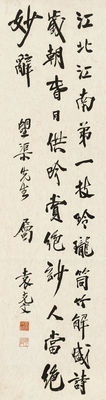 江北江南第一枝玲瓏筒竹解盛詩
歲朝春日供吟賞絕妙人當絕
妙辭
渠先生屬
袁克文